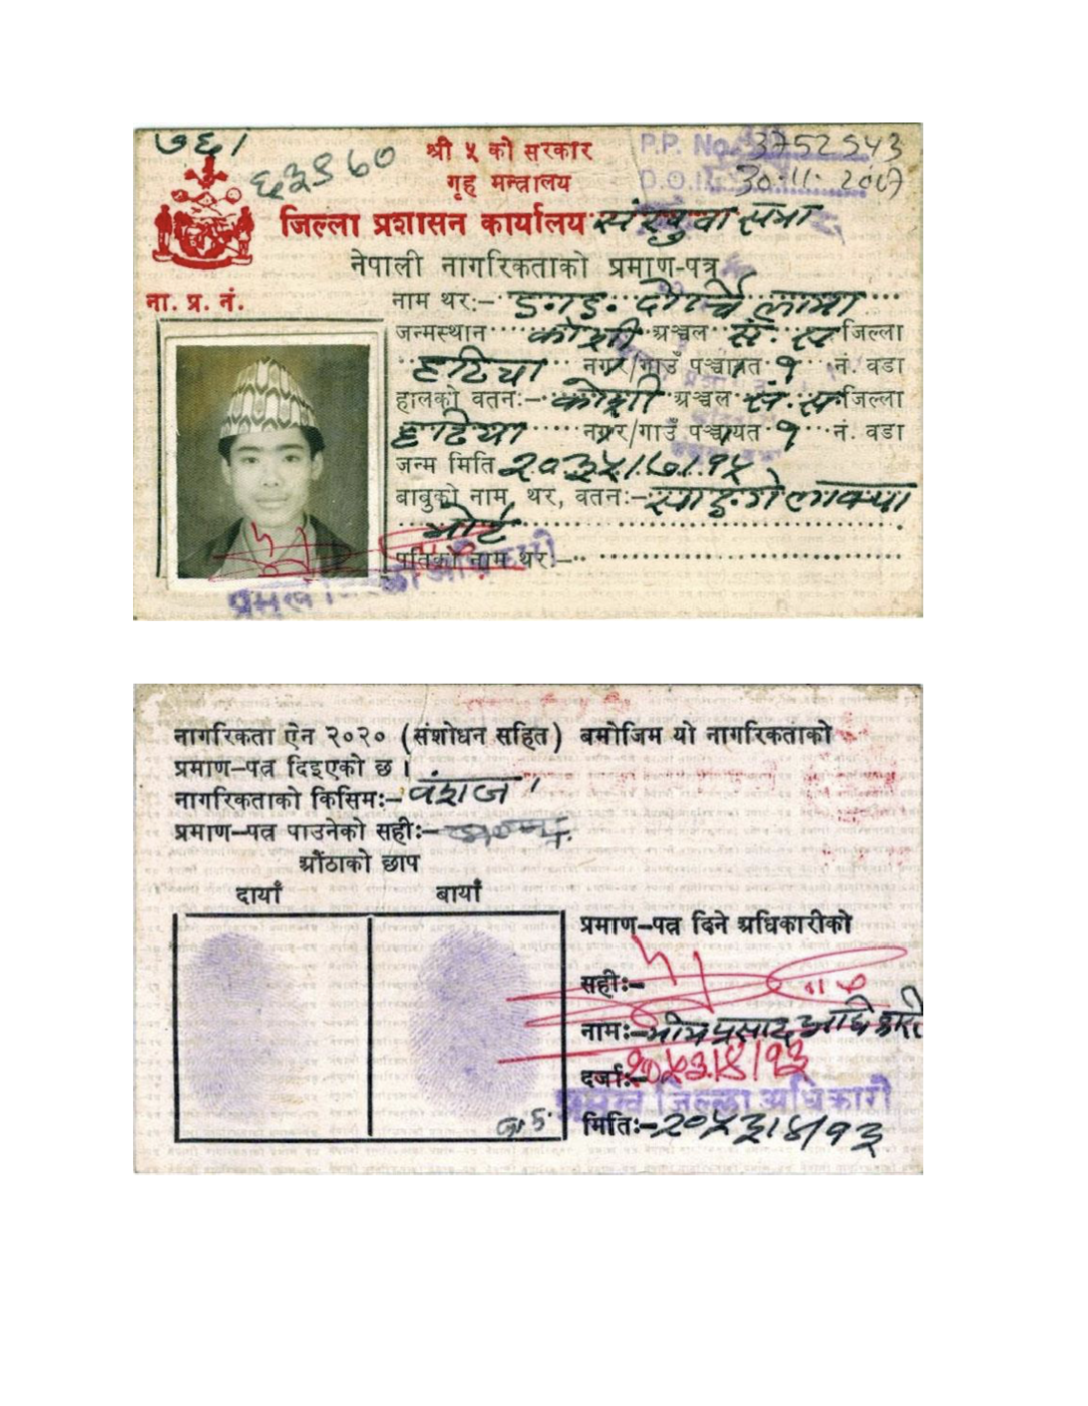 ७६।
६३९६०
श्री ५ को सरकार
P.P. No. 3752543
गृह मन्त्रालय
D.O.I. 30.11.2007
जिल्ला प्रशासन कार्यालय संखुवा सभा
नेपाली नागरिकताको प्रमाण-पत्र
ना. प्र. नं.
नाम थर:- लामा
जन्मस्थान कोशी अञ्चल सं. स जिल्ला
हटिया नगर/गाउँ पञ्चायत १ नं. वडा
हालको वतन:- कोशी अञ्चल सं. स जिल्ला
हटिया नगर/गाउँ पञ्चायत १ नं. वडा
जन्म मिति २०३५।७।१५
बाबुको नाम, थर, वतन:-
भोटे
पतिको नाम थर:-
प्रमुख जिल्ला अधिकारी
नागरिकता ऐन २०२० (संशोधन सहित) बमोजिम यो नागरिकताको
प्रमाण-पत्र दिइएको छ।
नागरिकताको किसिम:- वंशज
प्रमाण-पत्र पाउनेको सही:-
औंठाको छाप
दायाँ बायाँ
प्रमाण-पत्र दिने अधिकारीको
सही:-
नाम:- प्रसाद अधिकारी
दर्जा:- २०५३।४।१३
प्रमुख जिल्ला अधिकारी
मिति:- २०५३।४।१३